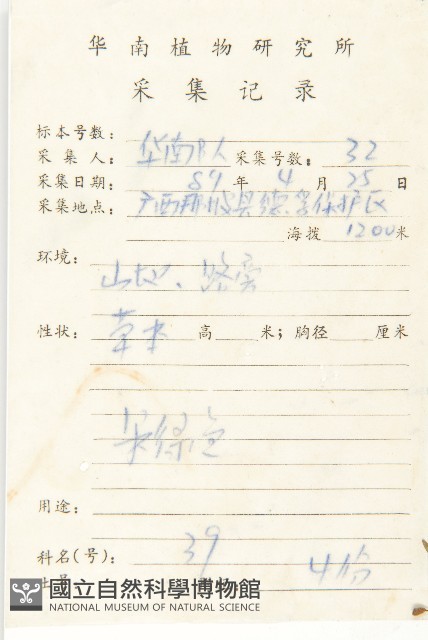 华南植物研究所
采集记录
标本号数：
采集人：华南队 采集号数：32
采集日期：89年4月25日
采集地点：广西那坡县德孚保护区
海拨1200米
环境：
山坡、路旁
性状：草本 高 米；胸径 厘米
果绿色
用途：
科名(号)：39
4份
國立自然科學博物館
NATIONAL MUSEUM OF NATURAL SCIENCE